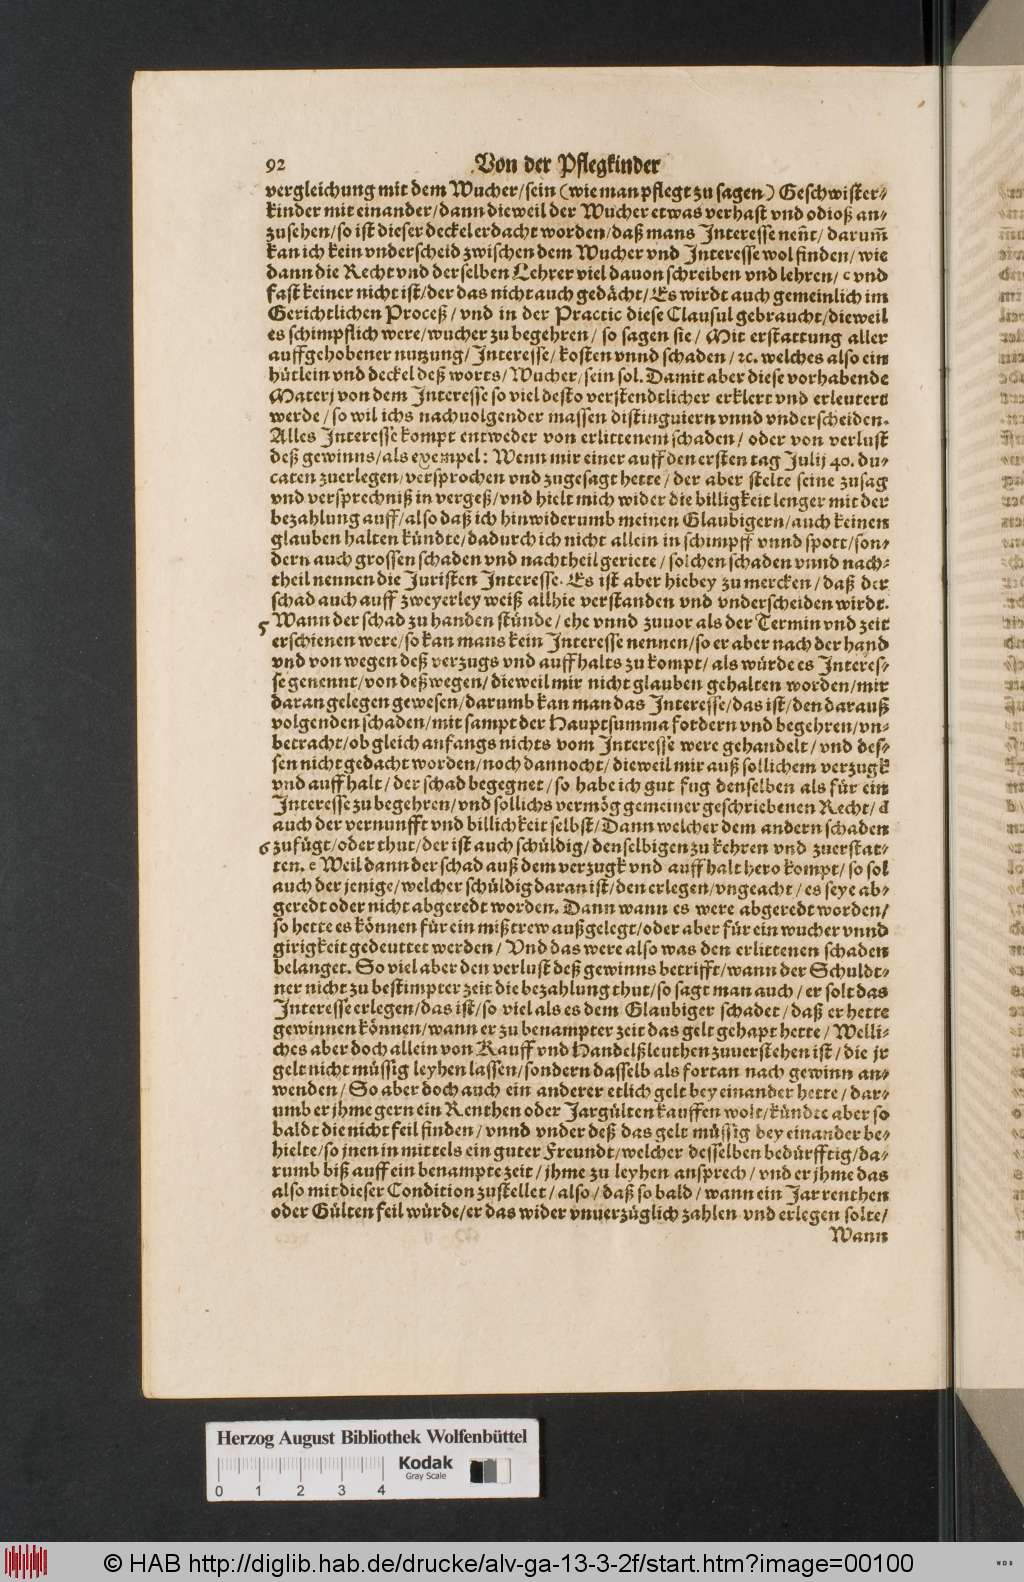 92 Von der Pflegkinder
vergleichung mit dem Wucher/sein (wie man pflegt zu sagen) Geschwister-
kinder mit einander/dann dieweil der Wucher etwas verhast vnd odioß an-
zusehen/so ist dieser deckel erdacht worden/daß mans Interesse neñt/darum̃
kan ich kein vnderscheid zwischen dem Wucher vnd Interesse wol finden/wie
dann die Recht vnd derselben Lehrer viel dauon schreiben vnd lehren/ c vnd
fast keiner nicht ist/der das nicht auch gedächt/Es wirdt auch gemeinlich im
Gerichtlichen Proceß/vnd in der Practic diese Clausul gebraucht/dieweil
es schimpflich were/wucher zu begehren/ so sagen sie/ Mit erstattung aller
auffgehobener nutzung/Interesse/kosten vnnd schaden/ꝛc. welches also ein
hütlein vnd deckel deß worts/Wucher/sein sol. Damit aber diese vorhabende
Materj von dem Interesse so viel desto verstendtlicher erklert vnd erleutert
werde/so wil ichs nachuolgender massen distinguiern vnnd vnderscheiden.
Alles Interesse kompt entweder von erlittenem schaden/ oder von verlust
deß gewinns/als exempel: Wenn mir einer auff den ersten tag Julij 40. du-
caten zuerlegen/versprochen vnd zugesagt hette/der aber stelte seine zusag
vnd versprechniß in vergeß/vnd hielt mich wider die billigkeit lenger mit der
bezahlung auff/also daß ich hinwiderumb meinen Glaubigern/auch keinen
glauben halten kündte/dadurch ich nicht allein in schimpff vnnd spott/son-
dern auch grossen schaden vnd nachtheil geriete/solchen schaden vnnd nach-
theil nennen die Juristen Interesse. Es ist aber hiebey zu mercken/daß der
schad auch auff zweyerley weiß allhie verstanden vnd vnderscheiden wirdt.
5 Wann der schad zu handen stünde/ehe vnnd zuuor als der Termin vnd zeit
erschienen were/so kan mans kein Interesse nennen/so er aber nach der hand
vnd von wegen deß verzugs vnd auffhalts zu kompt/als würde es Interes-
se genennt/von deß wegen/dieweil mir nicht glauben gehalten worden/mir
daran gelegen gewesen/darumb kan man das Interesse/das ist/den darauß
volgenden schaden/mit sampt der Hauptsumma fordern vnd begehren/vn-
betracht/ob gleich anfangs nichts vom Interesse were gehandelt/vnd des-
sen nicht gedacht worden/noch dannocht/dieweil mir auß sollichem verzugk
vnd auffhalt/der schad begegnet/so habe ich gut fug denselben als für ein
Interesse zu begehren/vnd sollichs vermög gemeiner geschriebenen Recht/d
auch der vernunfft vnd billichkeit selbst/Dann welcher dem andern schaden
6 zufügt/oder thut/der ist auch schüldig/denselbigen zu kehren vnd zuerstat-
ten. e Weil dann der schad auß dem verzugk vnd auffhalt hero kompt/so sol
auch der jenige/welcher schüldig daran ist/den erlegen/vngeacht/es seye ab-
geredt oder nicht abgeredt worden. Dann wann es were abgeredt worden/
so hette es können für ein mißtrew außgelegt/oder aber für ein wucher vnnd
girigkeit gedeuttet werden/Vnd das were also was den erlittenen schaden
belanget. So viel aber den verlust deß gewinns betrifft/wann der Schuldt-
ner nicht zu bestimpter zeit die bezahlung thut/so sagt man auch/er solt das
Interesse erlegen/das ist/so viel als es dem Glaubiger schadet/daß er hette
gewinnen können/wann er zu benampter zeit das gelt gehapt hette/Welli-
ches aber doch allein von Kauff vnd Handelßleuthen zuuerstehen ist/die jr
gelt nicht müssig leyhen lassen/sondern dasselb als fortan nach gewinn an-
wenden/So aber doch auch ein anderer etlich gelt bey einander hette/dar-
umb er jhme gern ein Renthen oder Jargülten kauffen wolt/kündte aber so
baldt die nicht feil finden/vnnd vnder deß das gelt müssig bey einander be-
hielte/so jnen in mittels ein guter Freundt/welcher desselben bedürfftig/da-
rumb biß auff ein benampte zeit/jhme zu leyhen ansprech/vnd er jhme das
also mit dieser Condition zustellet/also/daß so bald/wann ein Jar renthen
oder Gülten feil würde/er das wider vnuerzüglich zahlen vnd erlegen solte/
Wann
Herzog August Bibliothek Wolfenbüttel
0 1 2 3 4
Kodak
Gray Scale
© HAB http://diglib.hab.de/drucke/alv-ga-13-3-2f/start.htm?image=00100